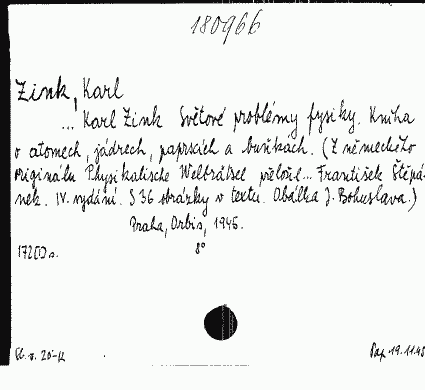 180966
Zink, Karl
... Karl Zink Světové problémy fysiky. Kniha
o atomech, jádrech, paprscích a buňkách. (Z německého
originálu Physikalische Welträtsel přeložil... František Štěpá-
nek. IV. vydání. S 36 obrázky v textu. Obálka J. Bohuslava.)
Praha, Orbis, 1945.
172 [I] s. 8°
19.11.45